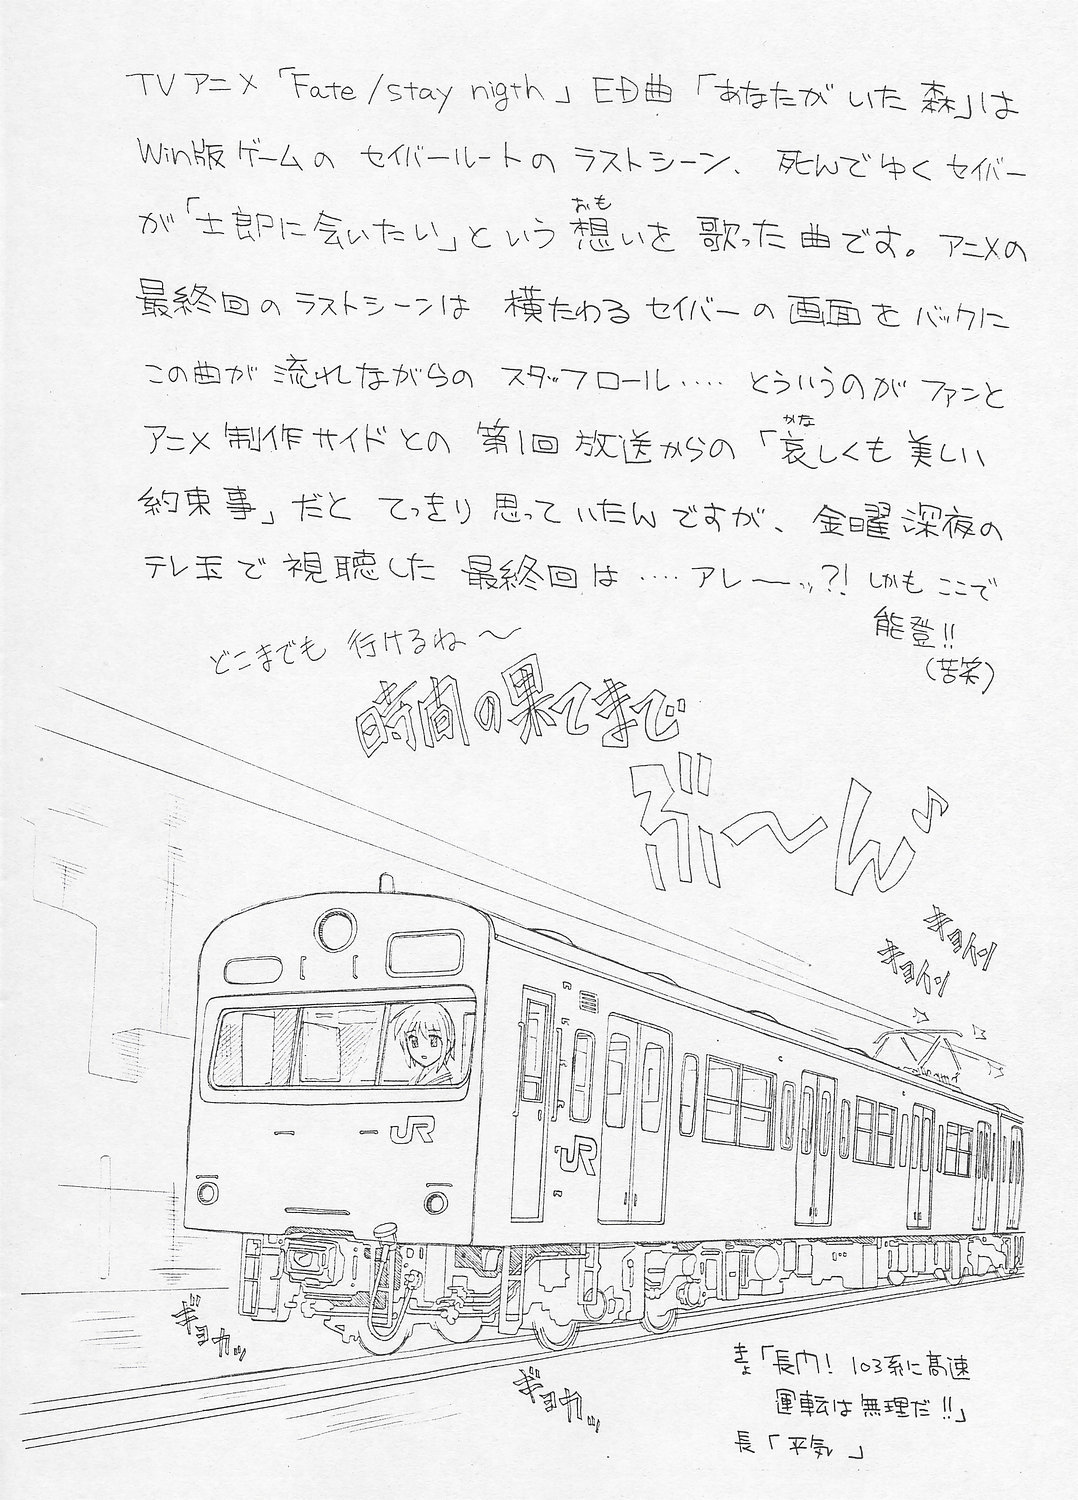 TVアニメ「Fate/stay nigth」ED曲「あなたがいた森」は
Win版ゲームの セイバールートの ラストシーン、死んでゆくセイバー
が「士郎に会いたい」という想いを 歌った曲です。アニメの
おも
最終回のラストシーンは 横たわるセイバーの画面をバックに
この曲が流れながらの スタッフロール‥‥ とういうのがファンと
アニメ制作サイドとの 第1回放送からの「哀しくも美しい
かな
約束事」だと てっきり思っていたんですが、金曜深夜の
テレ玉で視聴した 最終回は‥‥アレーッ?! しかもここで
能登!!
(苦笑)
どこまでも 行けるね〜
時間の果てまで
ぶ〜ん♪
キョイン
キョイン
JR
JR
ギョカッ
ギョカッ
「長門! 103系に高速
運転は無理だ!!」
長「平気」